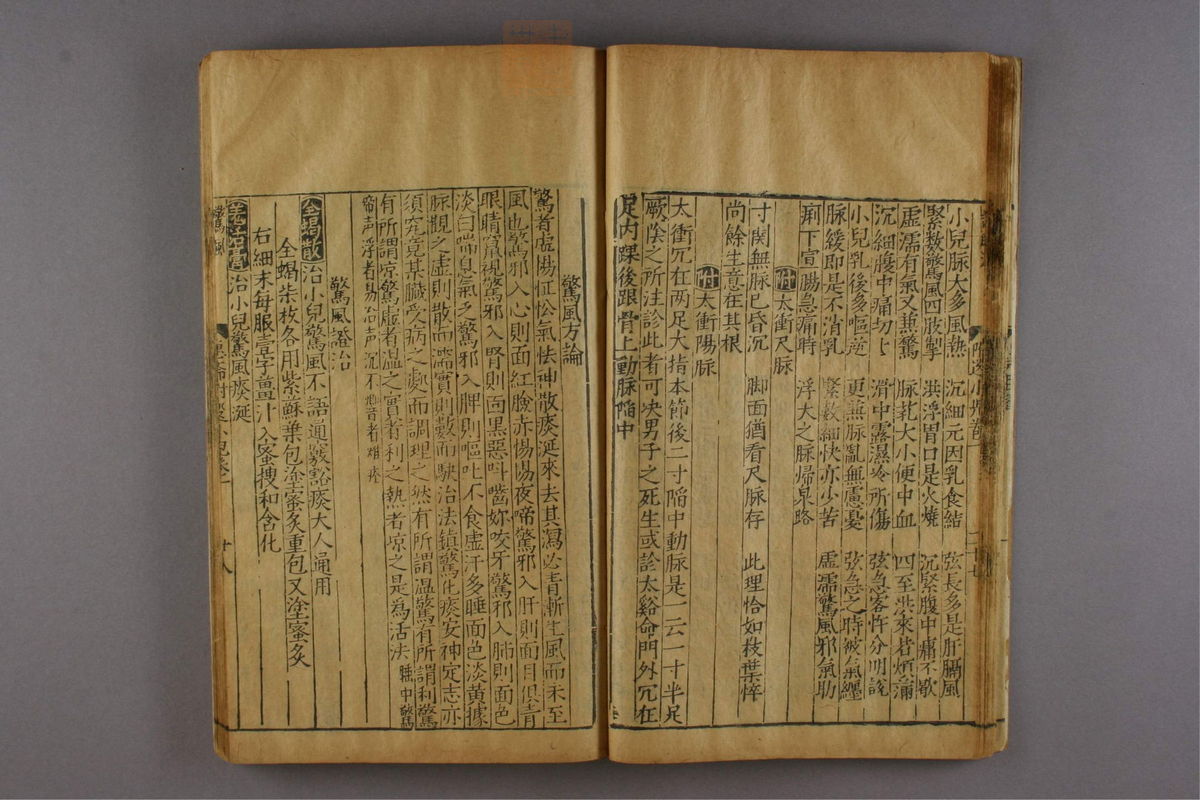 小兒脉大多風熱 沉細元因乳食結 弦長多是肝膈風
緊数驚風四肢掣 洪浮胃口是火燒 沉緊腹中痛不歇
虚濡有氣又兼驚 脉乱大小便中血 四至洪來苦煩滿
沉細腹中痛切切 滑中露濕冷所傷 弦急客忤分明說
小兒乳後多嘔逆 更無脉亂無慮憂 弦急之時被氣纏
脉緩即是不消乳 緊数細快亦少苦 虚濡驚風邪氣助
痢下宣腸急痛時 浮大之脉帰泉路
附太衝尺脉
寸関無脉已昏沉 脚面猶看尺脉存 此理恰如枝葉悴
尚餘生意在其根
附太衝陽脉
太衝穴在两足大指本節後二寸陷中動脉是一云一寸半足
厥陰之所注診此者可决男子之死生或診太谿命門外穴在
足内踝後跟骨上動脉陷中
驚風方論
驚者虚惕怔忪氣怯神散痰涎來去其瀉必青漸生風而未至
風也驚邪入心則面紅臉赤惕惕夜啼驚邪入肝則面目俱青
眼睛竄視驚邪入腎則面黒惡叫嚙妳咬牙驚邪入肺則面色
淡白喘息氣乏驚邪入脾則嘔吐不食虚汗多睡面色淡黄據
脉觀之虚則散而濡實則數而駃治法鎮驚化痰安神定志亦
須究竟某臓受病之處而調理之然有所謂温驚有所謂利驚
有所謂凉驚虚者温之實者利之熱者凉之是為活法 睡中驚
啼声浮者易治声沉不響者难痊
驚風證治
全蝎散治小兒驚風不語通竅豁痰大人通用
全蝎柒枚各用紫蘇葉包塗蜜炙重包又塗蜜炙
右細末每服壹字薑汁入蜜搜和含化
治小兒驚風痰涎
驚風
十八
二十七